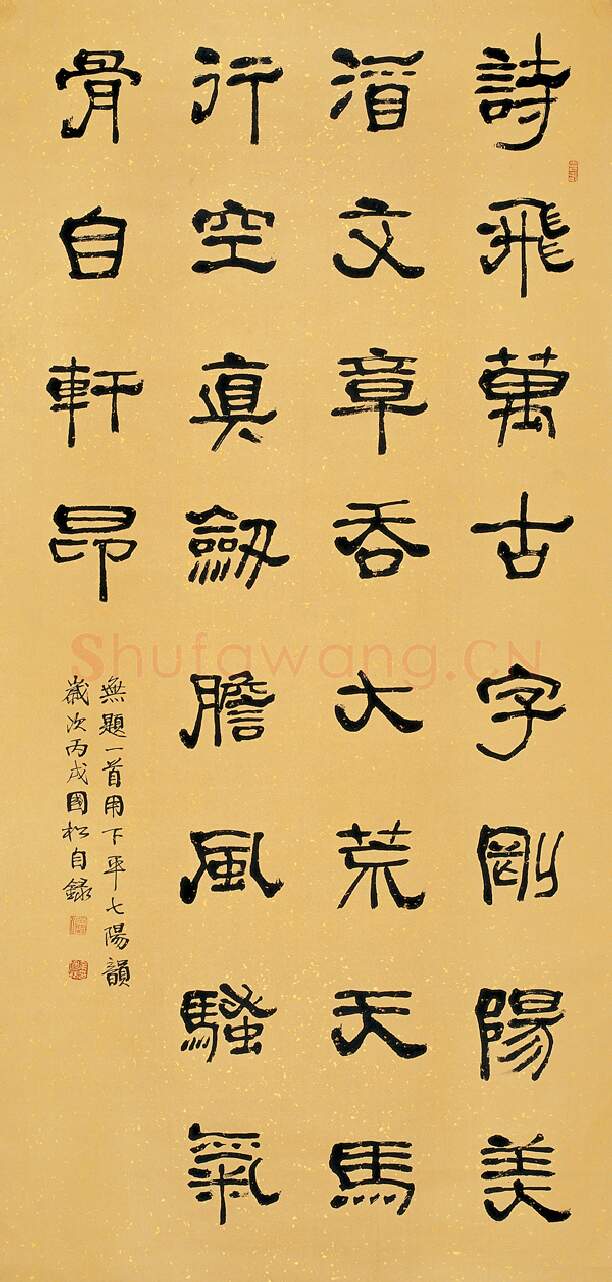 詩飛萬古字剛陽美
酒文章吞大荒天馬
行空真劒膽風騷氣
骨自軒昂
無題一首用下平七陽韻
歲次丙戌國松自錄
Shufawang.CN